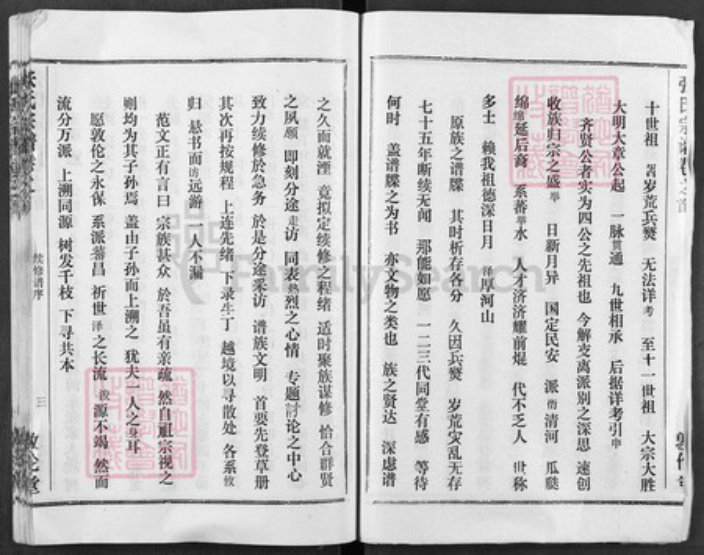 十世祖 因岁荒兵燹 无法详考 至十一世祖 大宗大胜
大明大章公起 一脉贯通 九世相承 后据详考引申
齐贤公者实为四公之先祖也 今解支离派别之深思 速创
收族归宗之盛举 日新月异 国定民安 派衍清河 瓜瓞
绵绵延后裔 系蕃攀水 人才济济耀前焜 代不乏人 世称
多士 赖我祖德深日月 泽厚河山
原族之谱牒 其时析存各分 久因兵燹 岁荒灾乱无存
七十五年断续无闻 那能如愿 一二三代同堂有感 等待
何时 盖谱牒之为书 亦文物之类也 族之贤达 深虑谱
之久而就湮 竟拟定续修之程绪 适时聚族谋修 恰合群贤
之夙愿 即刻分途走访 同表热烈之心情 专题讨论之中心
致力续修於急务 於是分途采访 谱族文明 首要先登草册
其次再按规程 上连先绪 下录生丁 越境以寻散处 各系攸
归 悬书面访远游 一人不漏
范文正有言曰 宗族甚众 於吾虽有亲疏 然自祖宗视之
则均为其子孙焉 盖由子孙而上溯之 犹夫一人之身耳
愿敦伦之永保 系派蕃昌 祈世泽之长流 我源不竭 然而
流分万派 上溯同源 树发千枝 下寻共本
续修谱序
三
FamilySearch